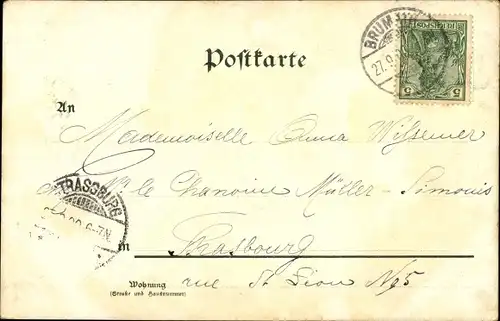 Postkarte
BRUM
27. 9.
5 5
An
Mademoiselle Anna Wilsemer
STRASSBURG
6-7N.
le Chanoine Müller-Simonis
in Strasbourg
Wohnung
(Straße und Hausnummer)
rue St Léon No 5